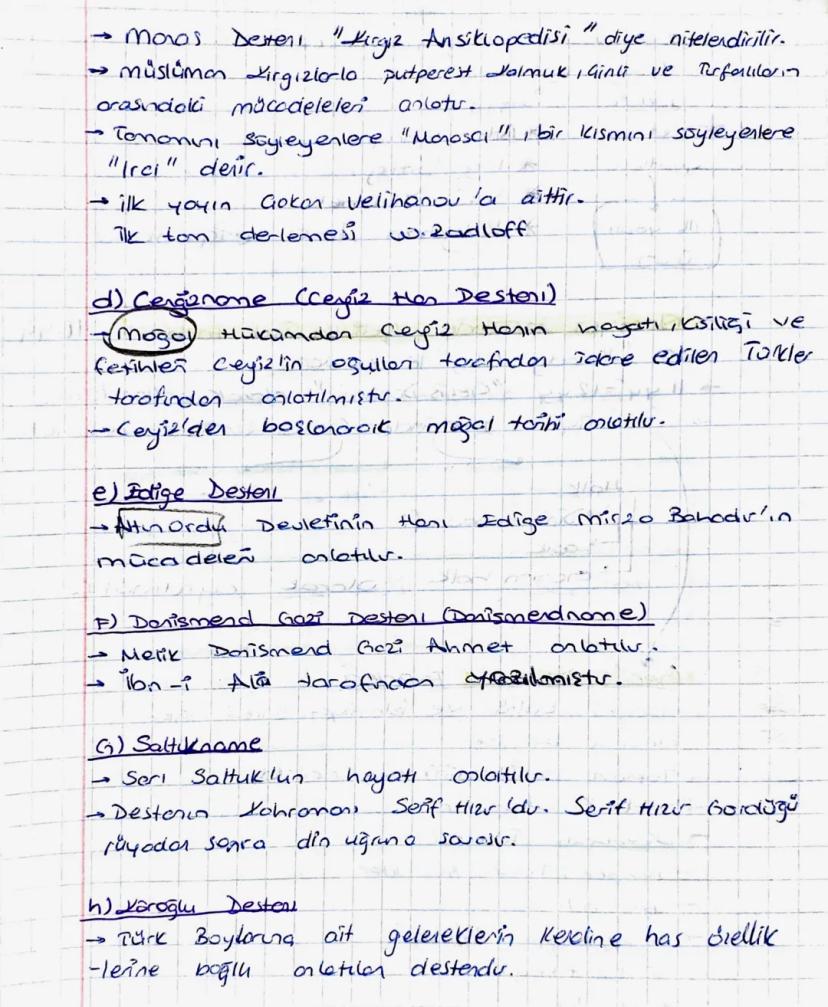 → Manas Destanı "Kırgız Ansiklopedisi" diye nitelendirilir.
→ müslüman Kırgızlarla putperest Kalmuk, Çinli ve Turfanlıların
arasındaki mücadeleleri anlatır.
→ Tamamını söyleyenlere "Manascı", bir kısmını söyleyenlere
"Irci" denir.
→ ilk yayın Çokan Velihanov'a aittir.
ilk tam derlemesi W. Radloff
d) Cengiznâme (Cengiz Han Destanı)
→ Moğol Hükümdarı Cengiz Hanın hayatı, kişiliği ve
fetihleri Cengiz'in oğulları tarafından idare edilen Türkler
tarafından anlatılmıştır.
→ Cengiz'den başlanarak moğol tarihi anlatılır.
e) Edige Destanı
→ Altın Ordu Devletinin Hanı Edige Mirza Bahadır'ın
mücadeleri anlatılır.
F) Danişmend Gazi Destanı (Danişmendname)
→ Melik Danişmend Gazi Ahmet anlatılır.
→ İbn-i Alâ tarafından yazılmıştır.
G) Saltukname
→ Sarı Saltuk'un hayatı anlatılır.
→ Destanın Kahramanı Şerif Hızır'dır. Şerif Hızır Gördüğü
rüyadan sonra din uğruna savaşır.
h) Köroğlu Destanı
→ Türk Boylarına ait geleneklerin Kendine has özellik
-lerine bağlı anlatılan destandır.